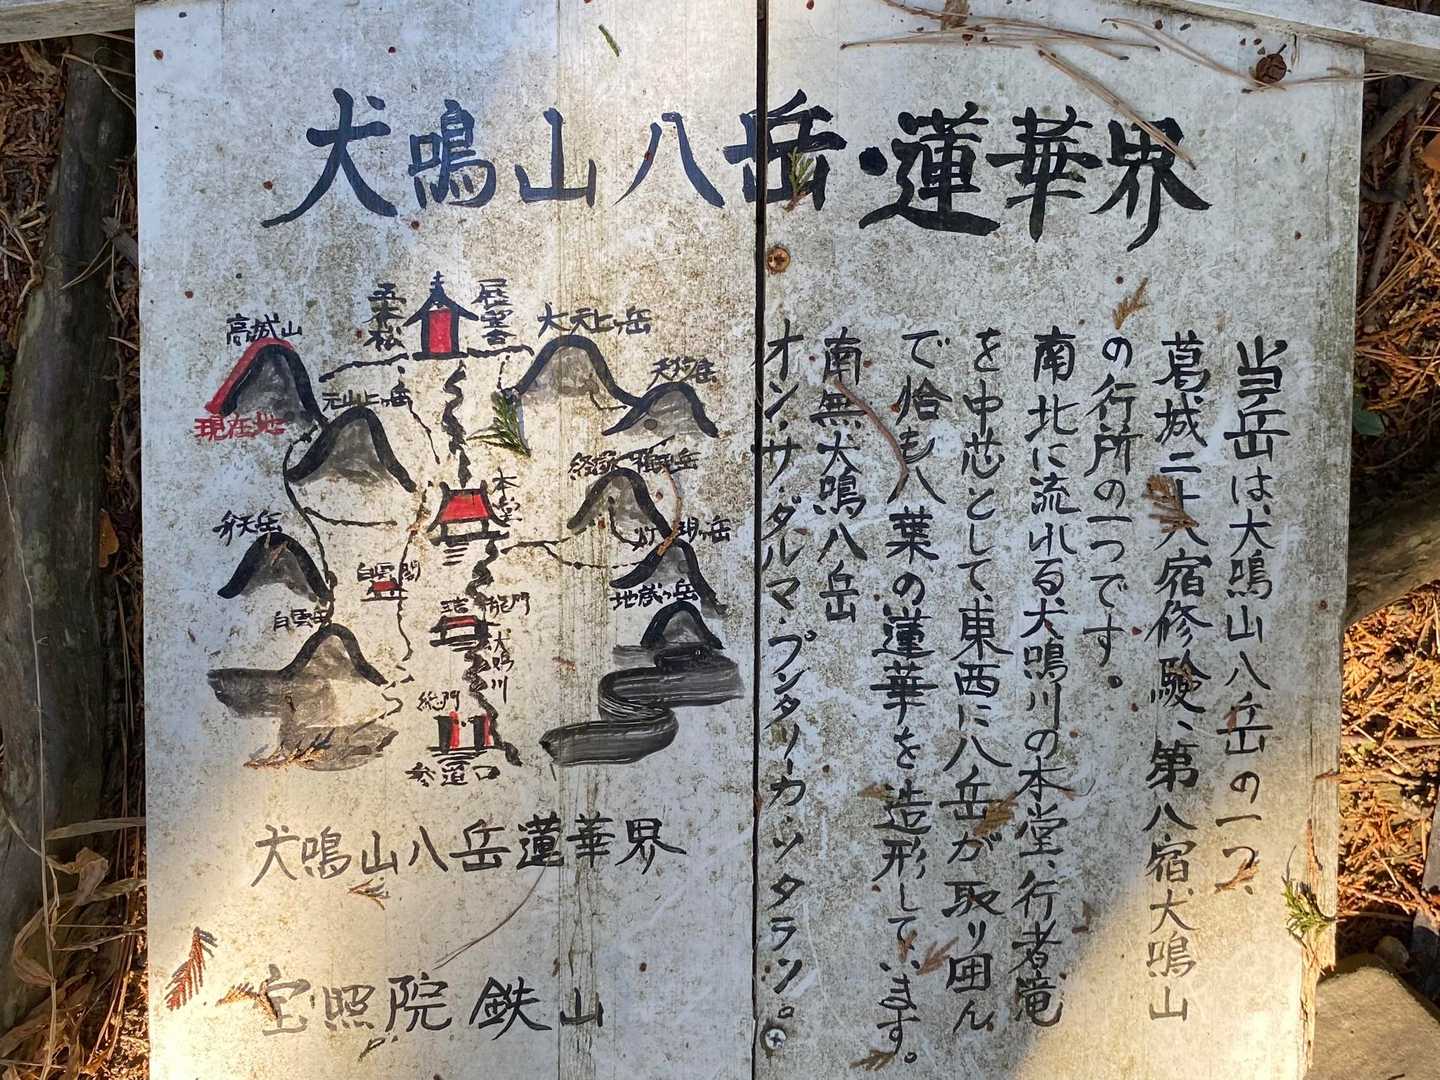 犬鳴山八岳・蓮華界
当岳は、犬鳴山八岳の一つ、
葛城二十八宿修験、第八宿犬鳴山
の行所の一つです。
南北に流れる犬鳴川の本堂、行者滝
を中芯として、東西に八岳が取り囲ん
で恰も八葉の蓮華を造形しています。
南無犬鳴八岳
オン・サ・ダルマ・プンダリーカ・ソタラン。
高城山
現在地
五本松
大天上ヶ岳
元山上ヶ岳
本堂
弁天岳
白雲岳
地蔵ヶ岳
犬鳴川
総門
参道口
犬鳴山八岳蓮華界
宝照院 鉄山